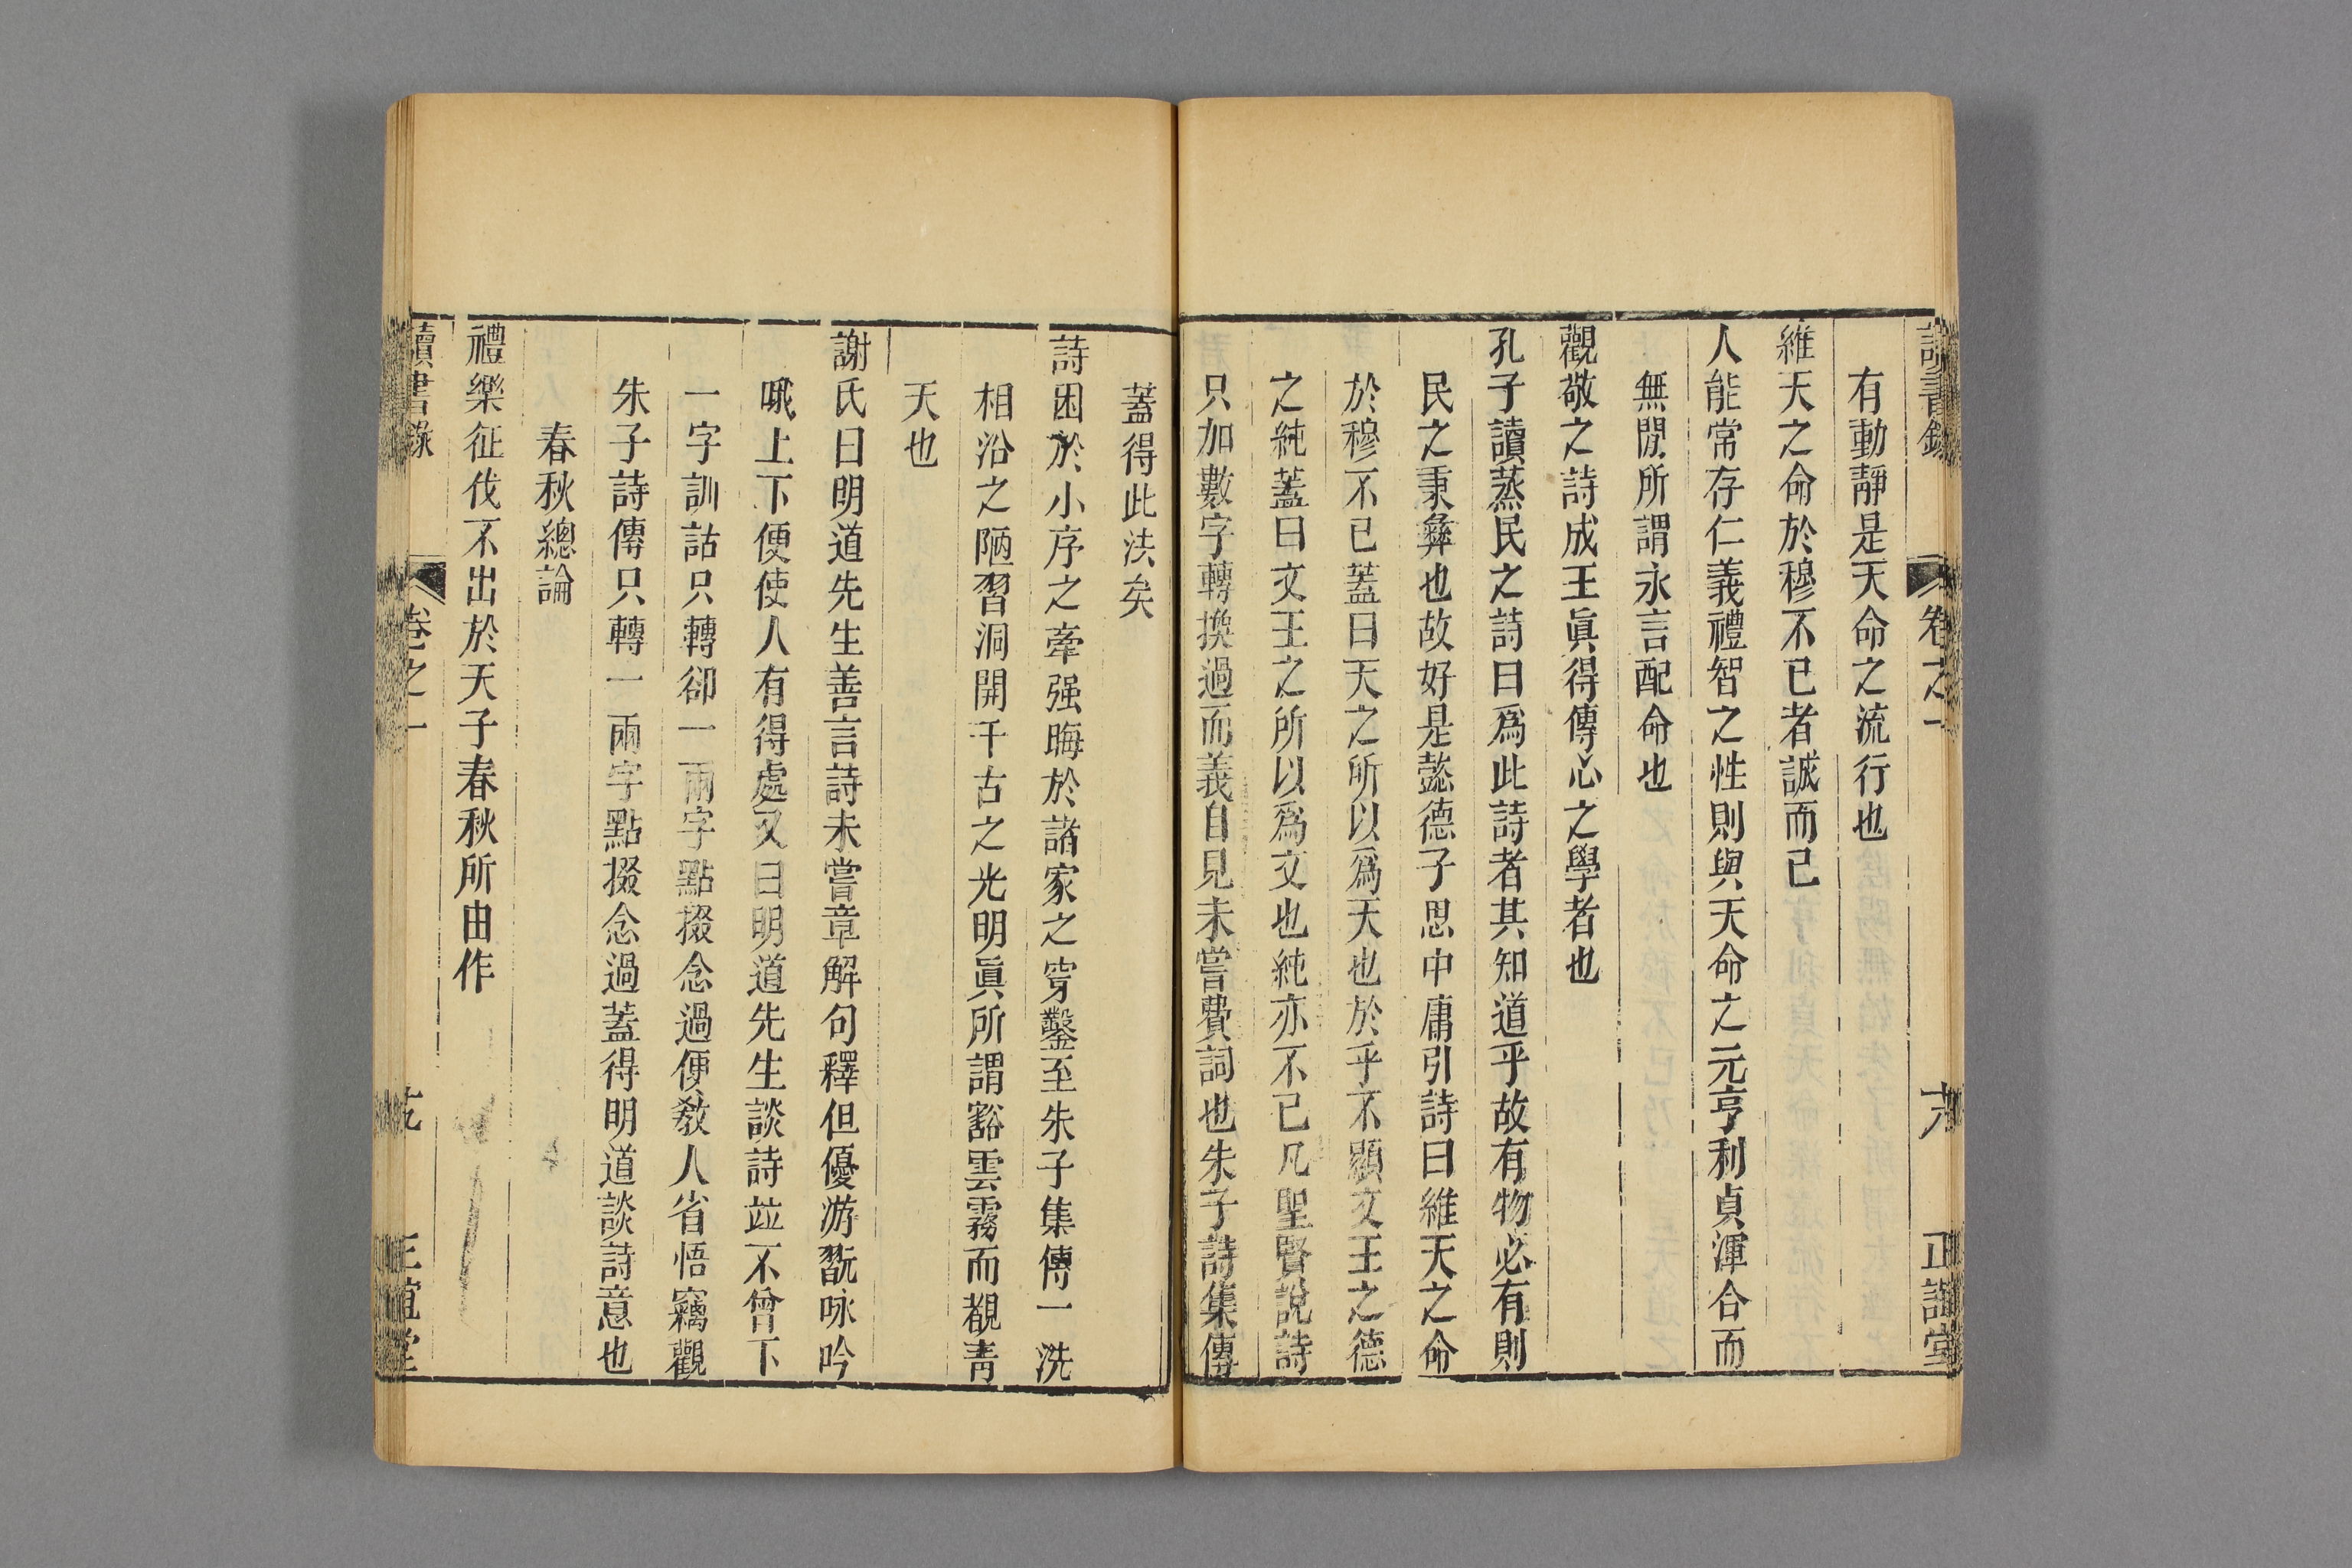 讀書錄 卷之一 六 正誼堂
有動靜是天命之流行也
維天之命於穆不已者誠而已
人能常存仁義禮智之性則與天命之元亨利貞渾合而
無閒所謂永言配命也
觀敬之詩成王眞得傳心之學者也
孔子讀蒸民之詩曰爲此詩者其知道乎故有物必有則
民之秉彝也故好是懿德子思中庸引詩曰維天之命
於穆不已蓋曰天之所以爲天也於乎不顯文王之德
之純蓋曰文王之所以爲文也純亦不已凡聖賢說詩
只加數字轉換過而義自見未嘗費詞也朱子詩集傳
蓋得此法矣
詩困於小序之牽强晦於諸家之穿鑿至朱子集傳一洗
相沿之陋習洞開千古之光明眞所謂豁雲霧而覩青
天也
謝氏曰明道先生善言詩未嘗章解句釋但優游翫咏吟
哦上下便使人有得處又曰明道先生談詩竝不曾下
一字訓詁只轉卻一兩字點掇念過便敎人省悟竊觀
朱子詩傳只轉一兩字點掇念過蓋得明道談詩意也
春秋總論
禮樂征伐不出於天子春秋所由作
讀書錄 卷之一 正誼堂